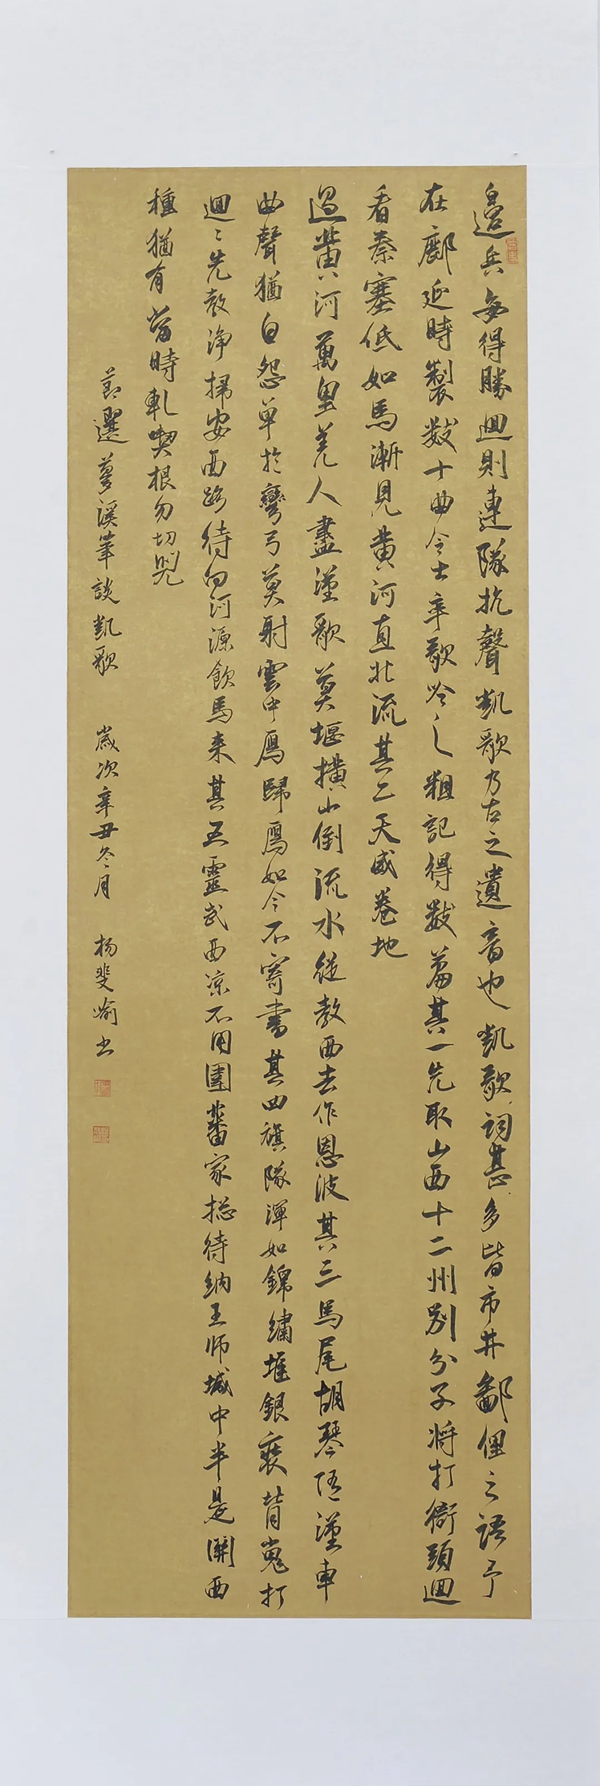 邊兵每得勝迴則連隊抗聲凱歌乃古之遺音也凱歌詞甚多皆市井鄙俚之語予
在鄜延時製數十曲令士卒歌今之粗記得數篇其一先取山西十二州別分子將打衙頭迴
看秦塞低如馬漸見黃河直北流其二天威卷地
過黃河萬里羌人盡漢歌莫堰橫山倒流水從教西去作恩波其三馬尾胡琴隨漢車
曲聲猶自怨單于彎弓莫射雲中鴈歸鴈如今不寄書其四旗隊渾如錦繡堆銀裝背嵬打
迴迴先教淨掃安西路待向河源飲馬來其五靈武西涼不用圍蕃家總待納王師城中半是關西
種猶有當時軋喫根勿切兕
節選夢溪筆談凱歌 歲次辛丑冬月 楊斐喻书